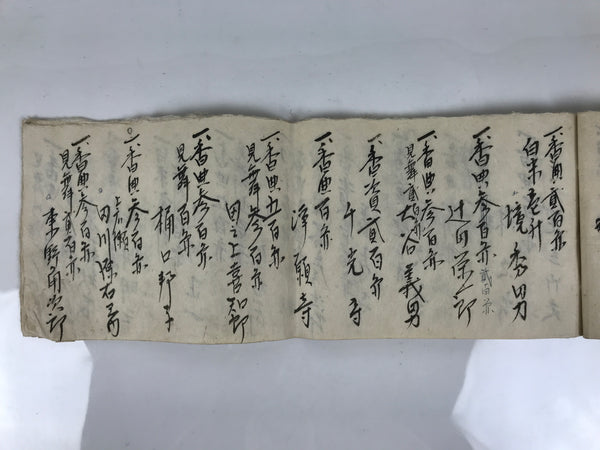 一、香典貳百疋
白米壱斗
境秀男
一、香典参百疋
貳百疋
辻田栄一郎
一、香典参百疋
見舞貳百疋
大谷義男
一、香資貳百疋
千光寺
一、香典百疋
浄願寺
一、香典五百疋
見舞参百疋
田之上喜知郎
一、香典参百疋
見舞百疋
桶口邦子
一、香典参百疋
田川
一、香典参百疋
見舞貳百疋